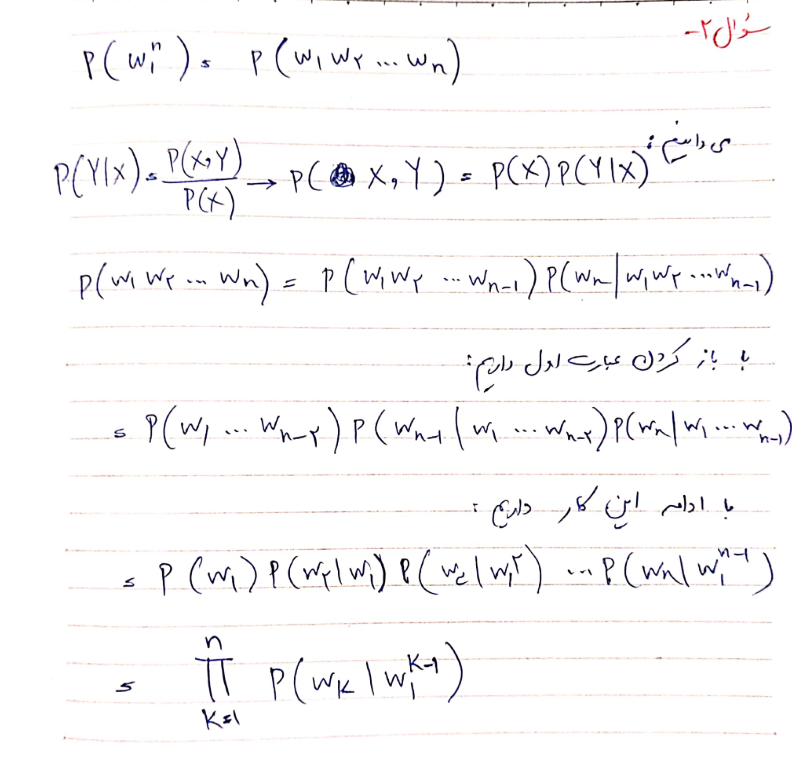 سؤال ۲-
P(w₁ⁿ) = P(w₁ w۲ ... wₙ)
می دانیم:
P(Y|X) = P(X,Y)/P(X) → P(X,Y) = P(X)P(Y|X)
P(w₁ w۲ ... wₙ) = P(w₁ w۲ ... wₙ₋₁) P(wₙ | w₁ w۲ ... wₙ₋₁)
با باز کردن عبارت اول داریم:
= P(w₁ ... wₙ₋۲) P(wₙ₋₁ | w₁ ... wₙ₋۲) P(wₙ | w₁ ... wₙ₋₁)
با ادامه این کار داریم:
= P(w₁) P(w۲|w₁) P(w۳|w₁^۲) ... P(wₙ|w₁^{n-1})
= ∏_{K=1}^{n} P(w_K | w₁^{K-1})